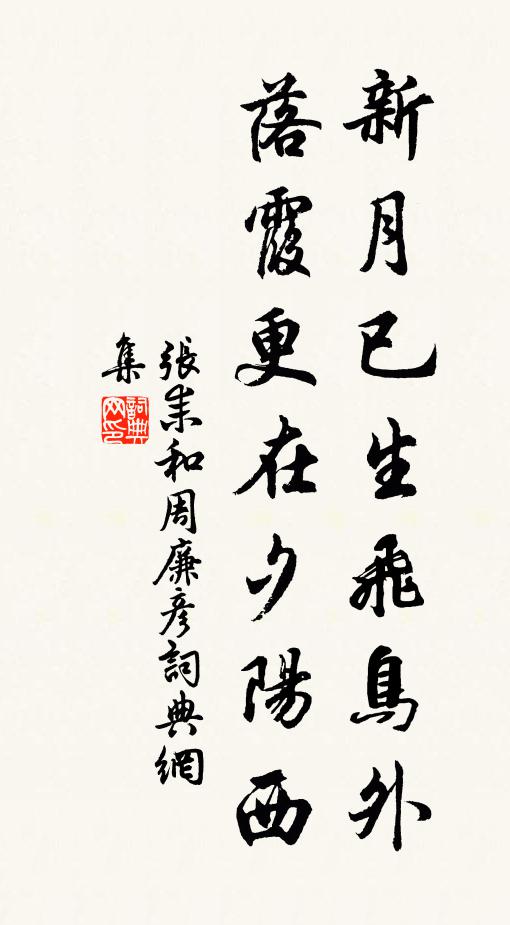 新月已生飛鳥外
落霞更在夕陽西
張耒和周廉彥詞典網
集
詞典網印